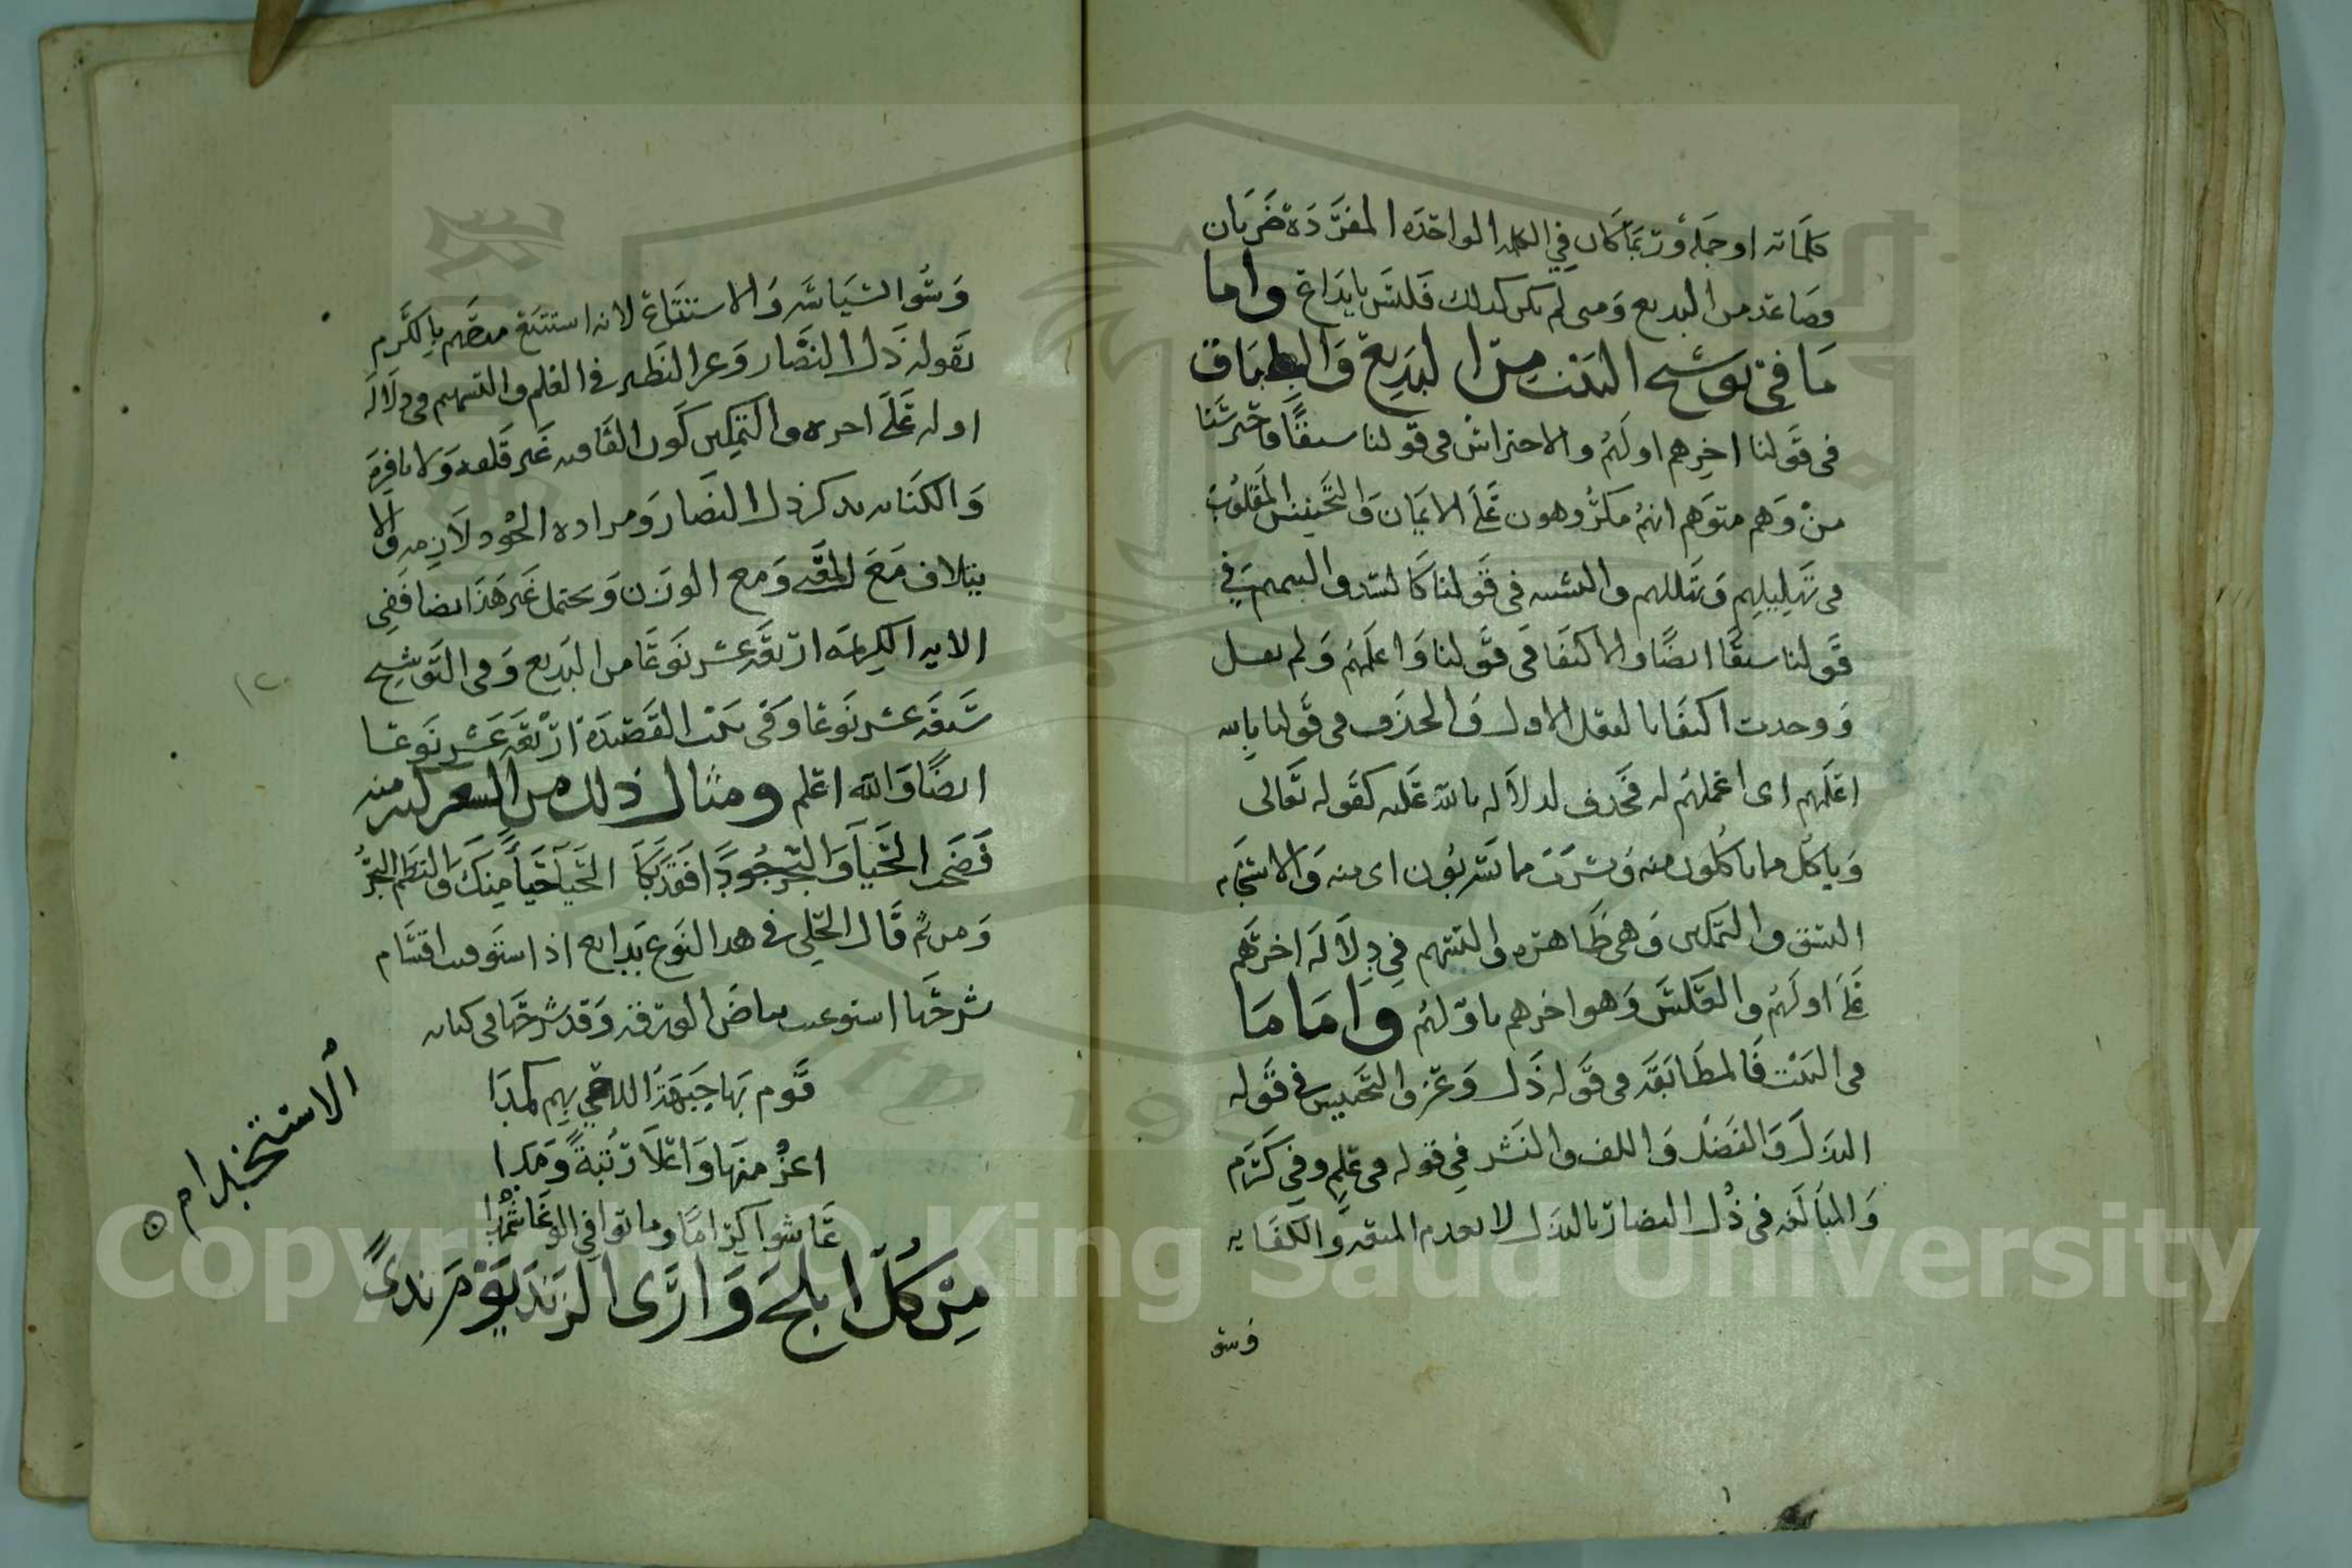 كلماته او جمله وربما كان في الكلمه الواحده المفرده ضربان
فصاعد من البديع ومى لم يكن كذلك فليس بابداع واما
ما في توشيح البيت من البديع والطباق
فى قولنا اخرهم اولهم والاحتراس فى قولنا سبقا
من وهم متوهم انهم مكروهون على الايمان والتجنيس المقلوب
فى تهليلهم والتشبيه في قولنا كالسد والتتميم في
قولنا سبقا ايضا والاكتفا في قولنا واعلمهم ولم نقل
ووحدت اكتفا بالعقل الاول والحذف فى قولنا بالله
اعلمهم اى اعملهم له فحذف لدلالة بالله عليه كقوله تعالى
وياكل مما تاكلون منه ويشرب مما تشربون اى منه والانسجام
والتمكين وهى ظاهره والتسهيم في دلالة اخرهم
على اولهم والعكس وهو اخرهم باولهم واما ما
فى البيت فالمطابقه فى قوله ذل وعز والتجنيس في قوله
البذل والفضل واللف والنشر في قوله فى علم وفي كرم
والمبالغه فى ذل النضار بالبذل لا بعدم والكفايه
وسو
والاستتباع لانه استتبع مدحهم بالكرم
بقوله ذل النضار وعز النظير فى العلم والتسهيم فى دلالة
اوله على اخره والتمكين كون القافيه غير قلقه ولا نافره
والكنايه بذكر ذل النضار ومراده الجود لازمه والا
يتلاف مع المعنى ومع الوزن ويحتمل غير هذا ايضا ففي
الايه الكريمه اربعة عشر نوعا من البديع وفى التوشيح
سبعة عشر نوعا وفى بيت القصيده اربعة عشر نوعا
ايضا والله اعلم ومثال ذلك من الشعر منه
فضحت الحيا والبحر جودا فقد بكا الحيا حيا منك والتطم البحر
ومن ثم قال الحلي في هذا النوع بدايع اذا استوفيت اقسام
شرحها استوعب بياض وقد شرحها فى كتابه
قوم بها
اعز منها واعلا رتبة ومدا
عاشوا كراما وماتوا في الوغا شهدا
من كل ابلج وارى الزند يوم ندى
الاستخدام
Copyright © King Saud University